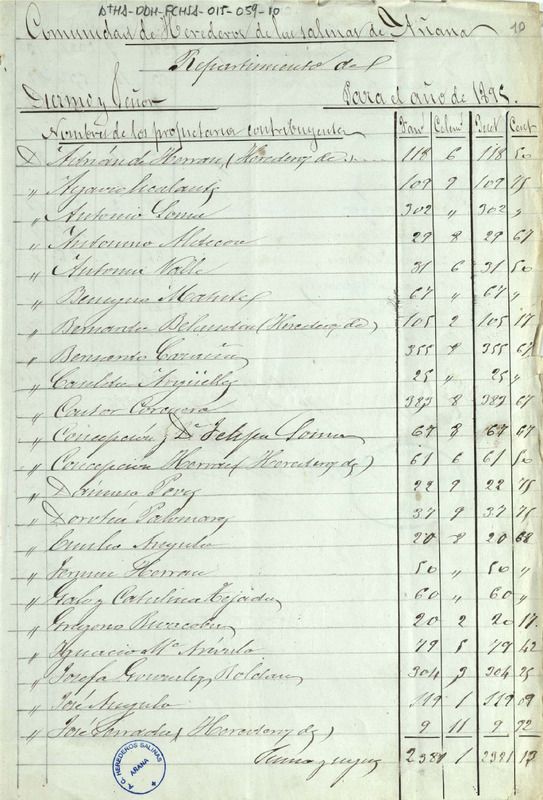 AtHA-DDH-FCHSA-015-059-10
Comunidad de Herederos de las salinas de Añana 10
Repartimiento del
Diezmo y Señor Para el año de 1895.
Nombres de los propietarios contribuyentes Fan. Celem. Peset. Cent.
D. Adrián de Herran (Herederos de) 118 6 118 50
" 109 9 109 75
" Antonio Soma 302 " 302 "
" Antonino Aldecoa 29 8 29 67
" Antonio Valle 31 6 31 50
" Benigno 67 " 67 "
" Bernardo Belandia (Herederos de) 105 2 105 17
" Bernardo 355 8 355 67
" Casilda Argüelles 25 " 25 "
" Castor Corcuera 383 8 383 67
" Concepcion y Dª Felipa Soma 67 8 67 67
" Concepcion Herran (Herederos de) 61 6 61 50
" Dámaso Perez 22 9 22 75
" Dorotea Palomares 37 9 37 75
" Emilio Angulo 20 8 20 68
" Fermin Herran 50 " 50 "
" Galo y Catalina Tejada 60 " 60 "
" Gregorio 20 2 20 17
" Ignacio Mª Arévalo 79 5 79 42
" Josefa Gonzalez Roldan 304 3 304 25
" José Angulo 119 1 119 09
" José (Herederos de) 9 11 9 92
Suma y sigue 2381 1 2381 13
A.C. HEREDEROS SALINAS
AÑANA